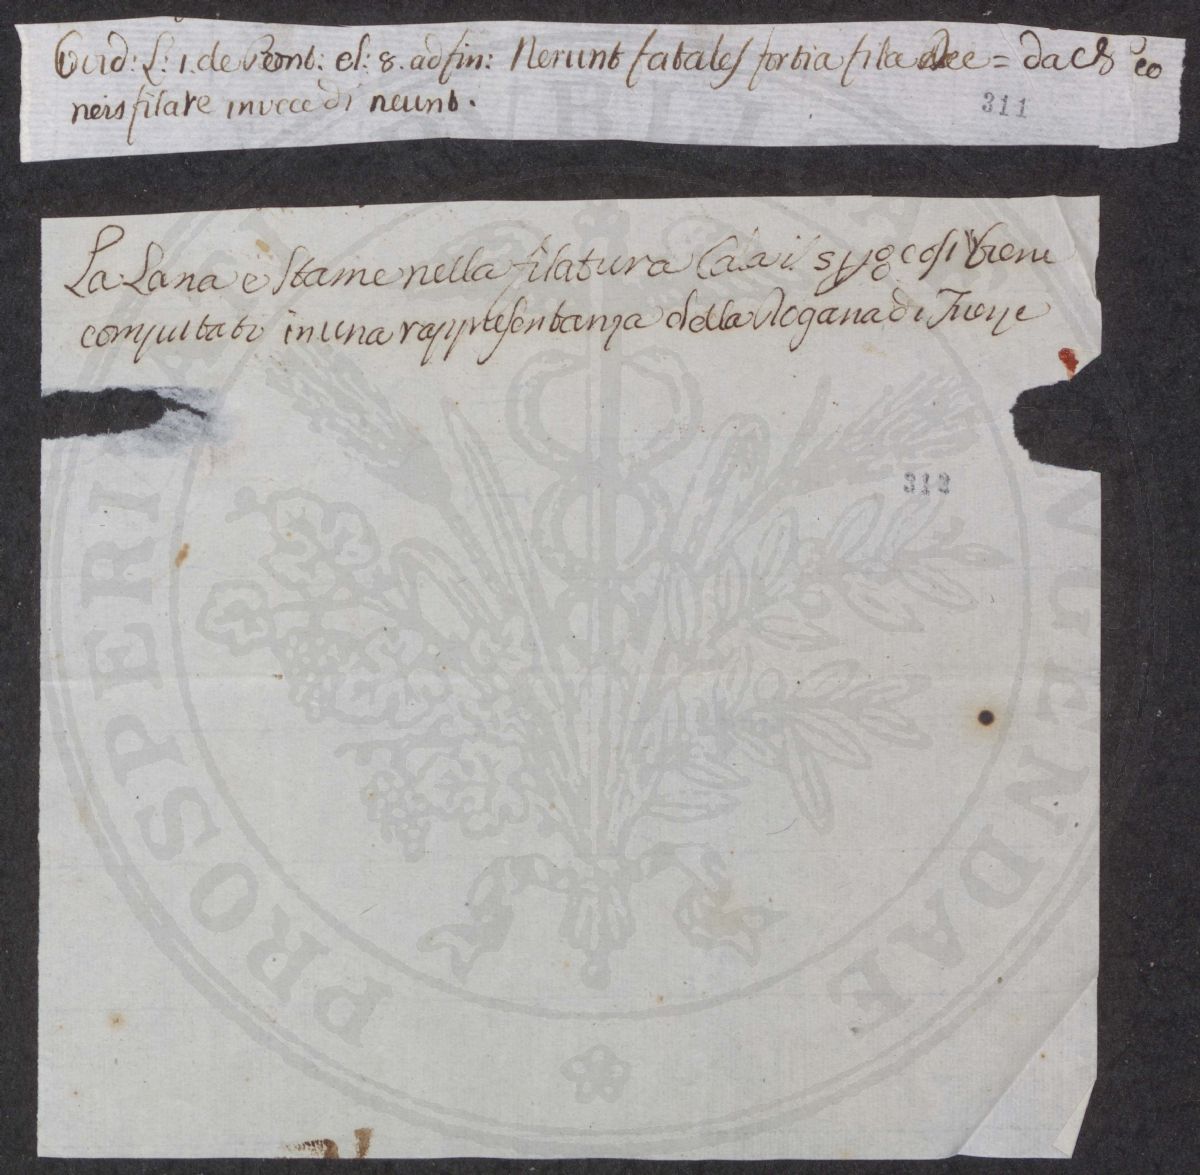 Ovid: L: 1. de Pont: el: 8. ad fin: Nerunt fatales fortia fila Dee = da
neis filare invece di neunt.
311
La Lana e Stame nella filatura Cala il 8 così Viene
computato in una rappresentanza della Dogana di
312
PUBLICAE
PROSPERITATI AUGENDAE